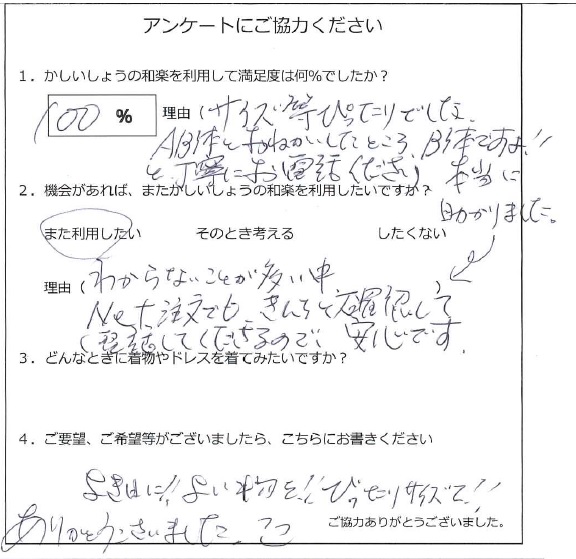 アンケートにご協力ください
1．かしいしょうの和楽を利用して満足度は何％でしたか？
100 %
理由（サイズ等ぴったりでした
AB体とおねがいしたところ、B体ですよ!!
と丁寧にお電話くださり 本当に
助かりました。
2．機会があれば、またかしいしょうの和楽を利用したいですか？
また利用したい そのとき考える したくない
理由（わからないことが多い中
Net注文でも、きんちと 確認して
電話してくださるので 安心です。
3．どんなときに着物やドレスを着てみたいですか？
4．ご要望、ご希望等がございましたら、こちらにお書きください
よき日に!! よい物を!! ぴったりサイズで!!
ありがとうございました。
ご協力ありがとうございました。